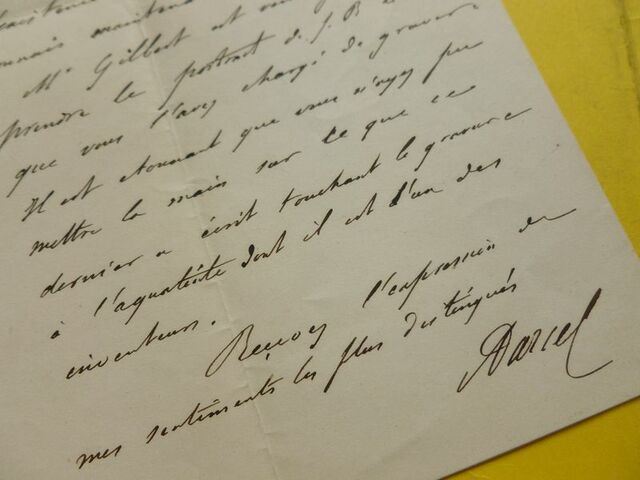 connais maintenant
Mr Gilbert est
prendre le portrait de J. B.
que vous l'avez chargé de graver
Il est étonnant que vous n'ayez pu
mettre la main sur ce que ce
dernier a écrit touchant la gravure
à l'aquateinte dont il est l'un des
inventeurs.
Recevez l'expression de
mes sentiments les plus distingués
ADarcel